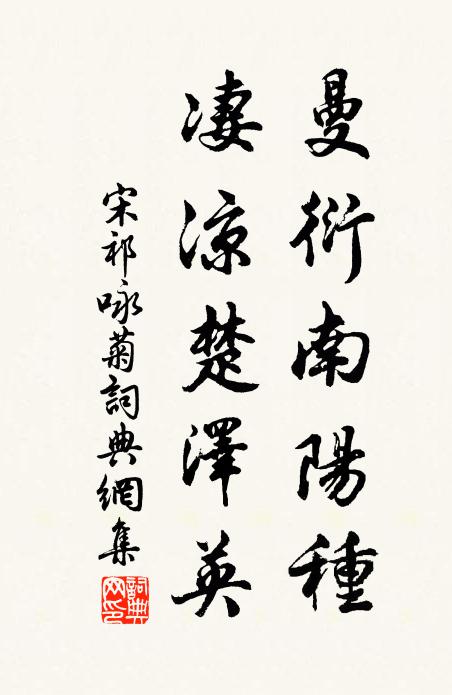 曼衍南陽種
凄涼楚澤英
宋祁咏菊詞典網集
詞典網印